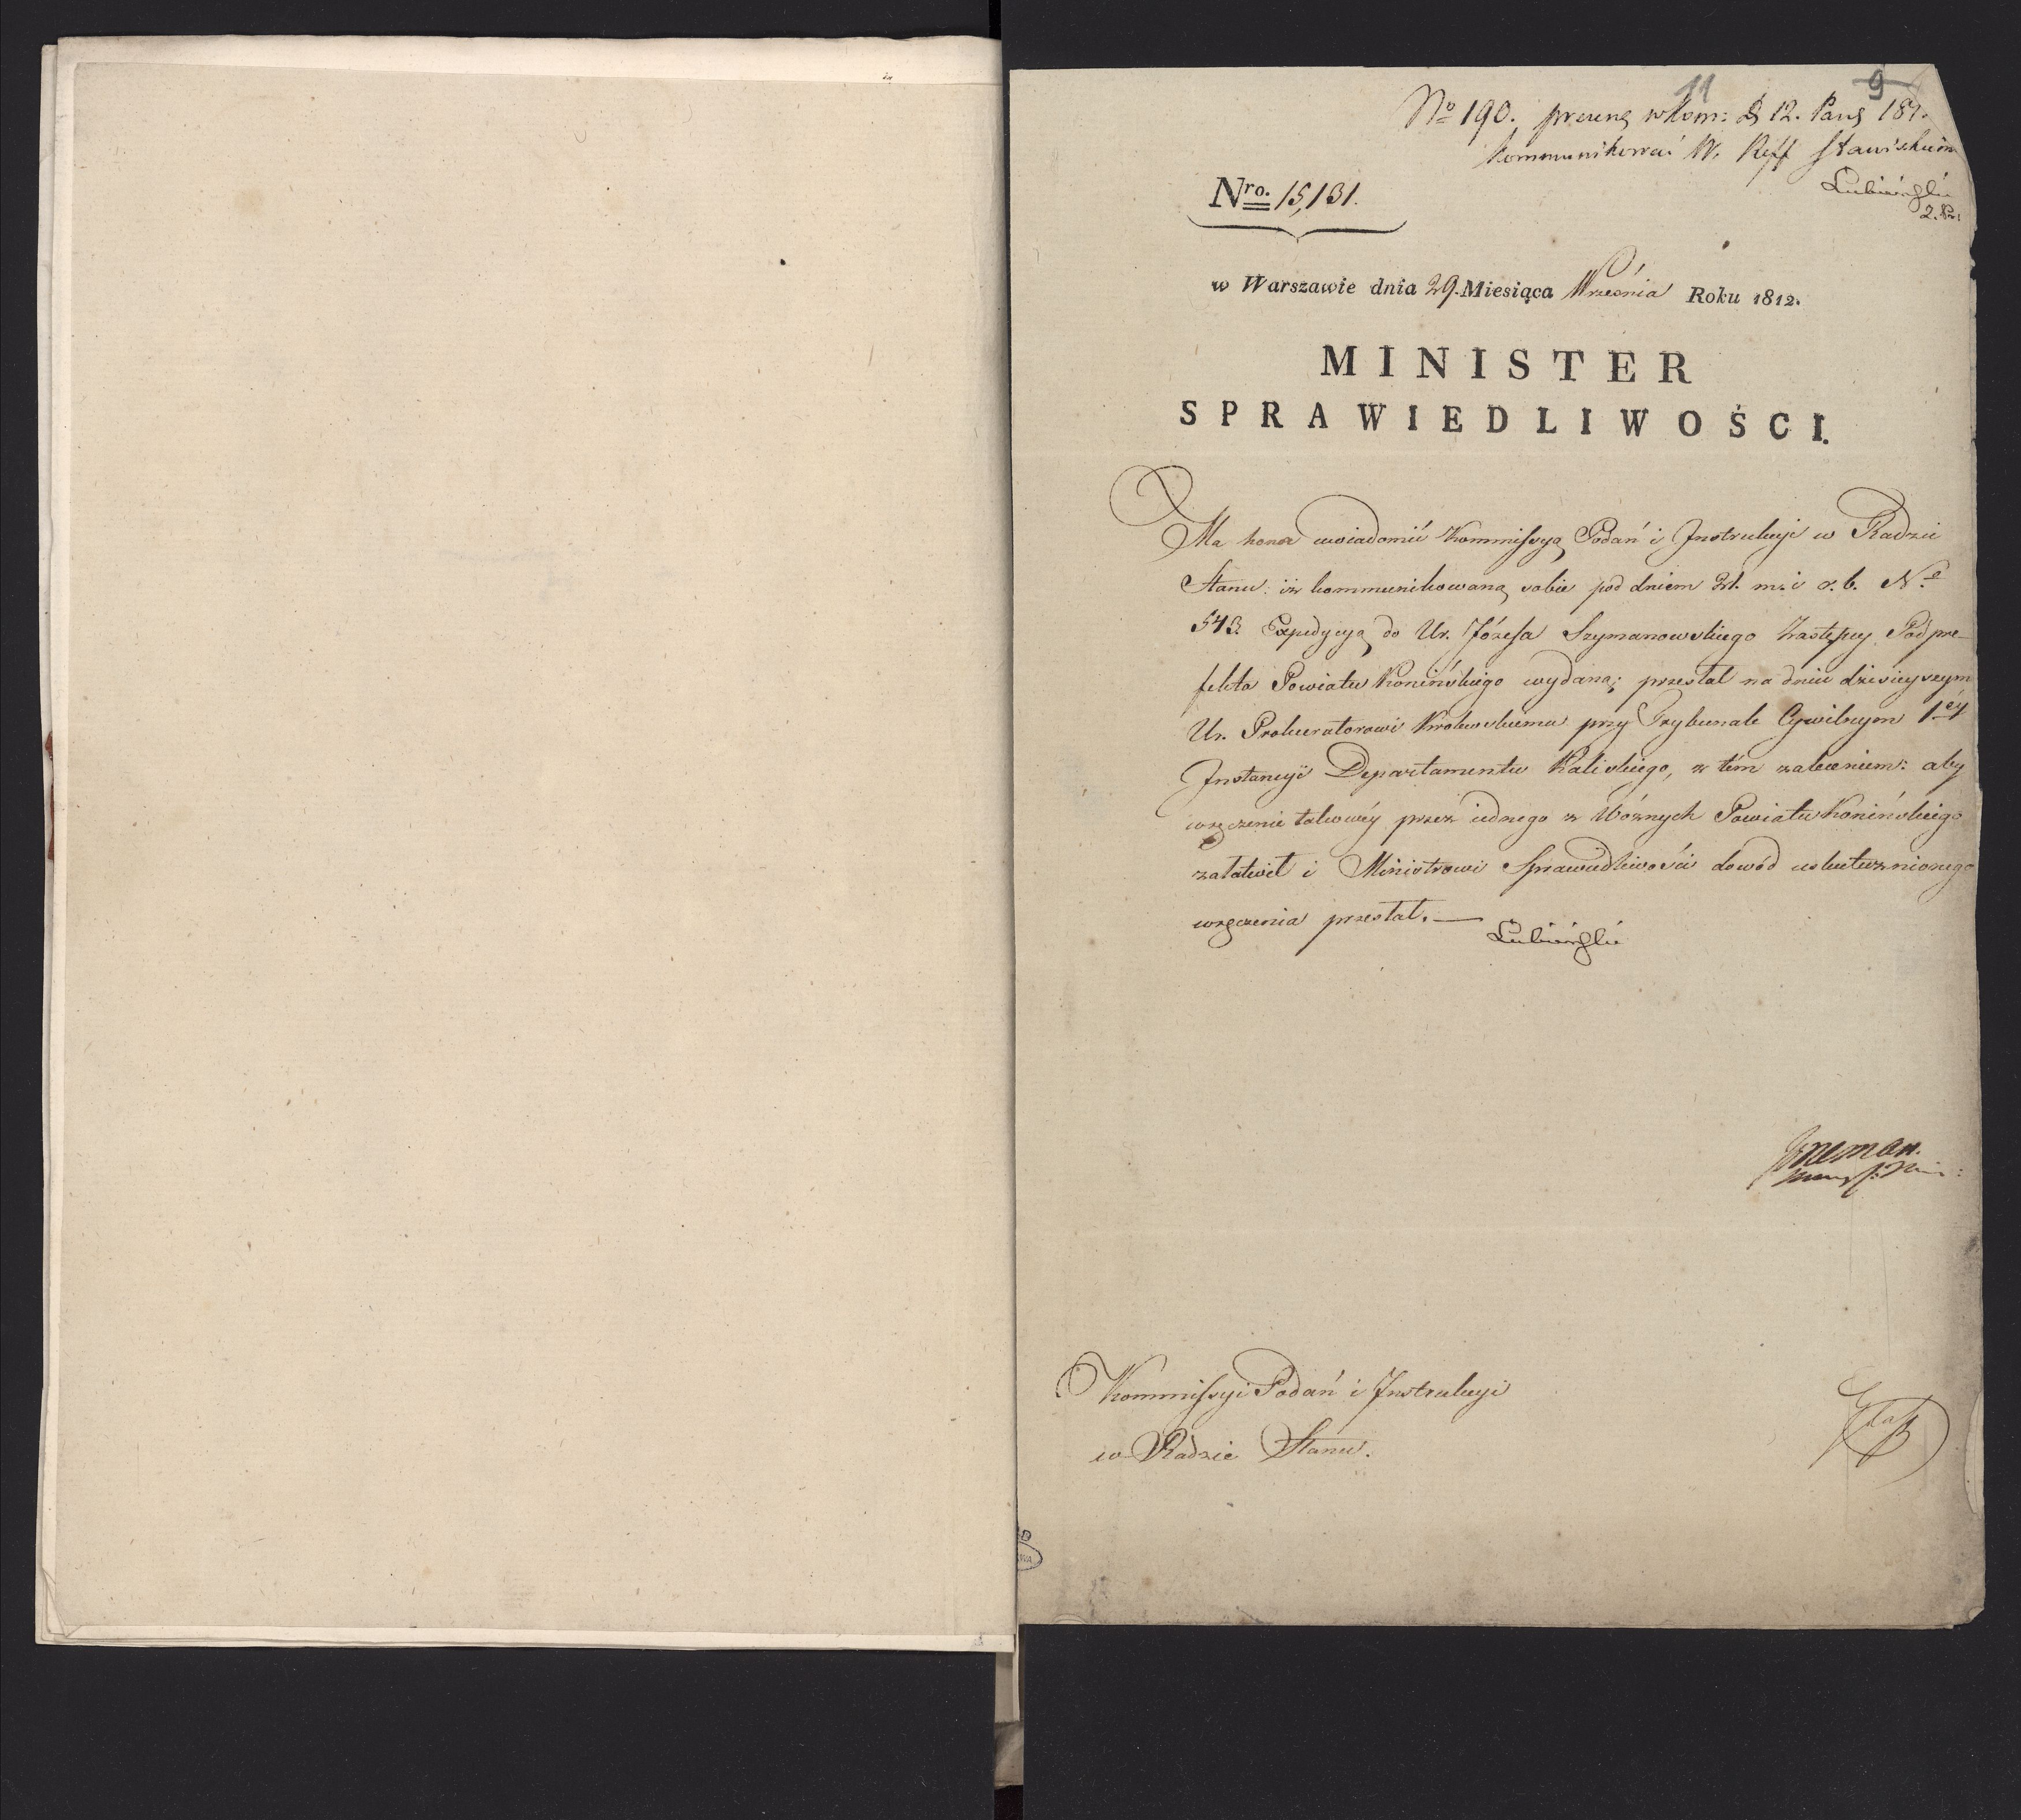 11
9
Nº 190. w Kom: d 12. Paźd 181
kommunikować W. Reff Stawiskiem
Lubieński
Nro. 15,131.
w Warszawie dnia 29. Miesiąca Września Roku 1812.
MINISTER
SPRAWIEDLIWOŚCI.
Ma honor uwiadomić Kommissyą Podań i Instrukcyi w Radzie
Stanu: iż kommunikowaną sobie pod dniem 21. m. i r. b. Nº
543. Expedycyą do Ur. Józefa Szymanowskiego Zastępcy Podpre-
fekta Powiatu Konińskiego wydaną; przesłał na dniu dzisieyszym
Ur. Prokuratorowi Królewskiemu przy Trybunale Cywilnym 1éy
Instancyi Departamentu Kaliskiego, z tém zaleceniem: aby
wręczenie takowéy przez iednego z Woźnych Powiatu Konińskiego
załatwił i Ministrowi Sprawiedliwości dowód uskutecznionego
wręczenia przesłał. —
Lubieński
Kommissyi Podań i Instrukcyi
w Radzie Stanu.